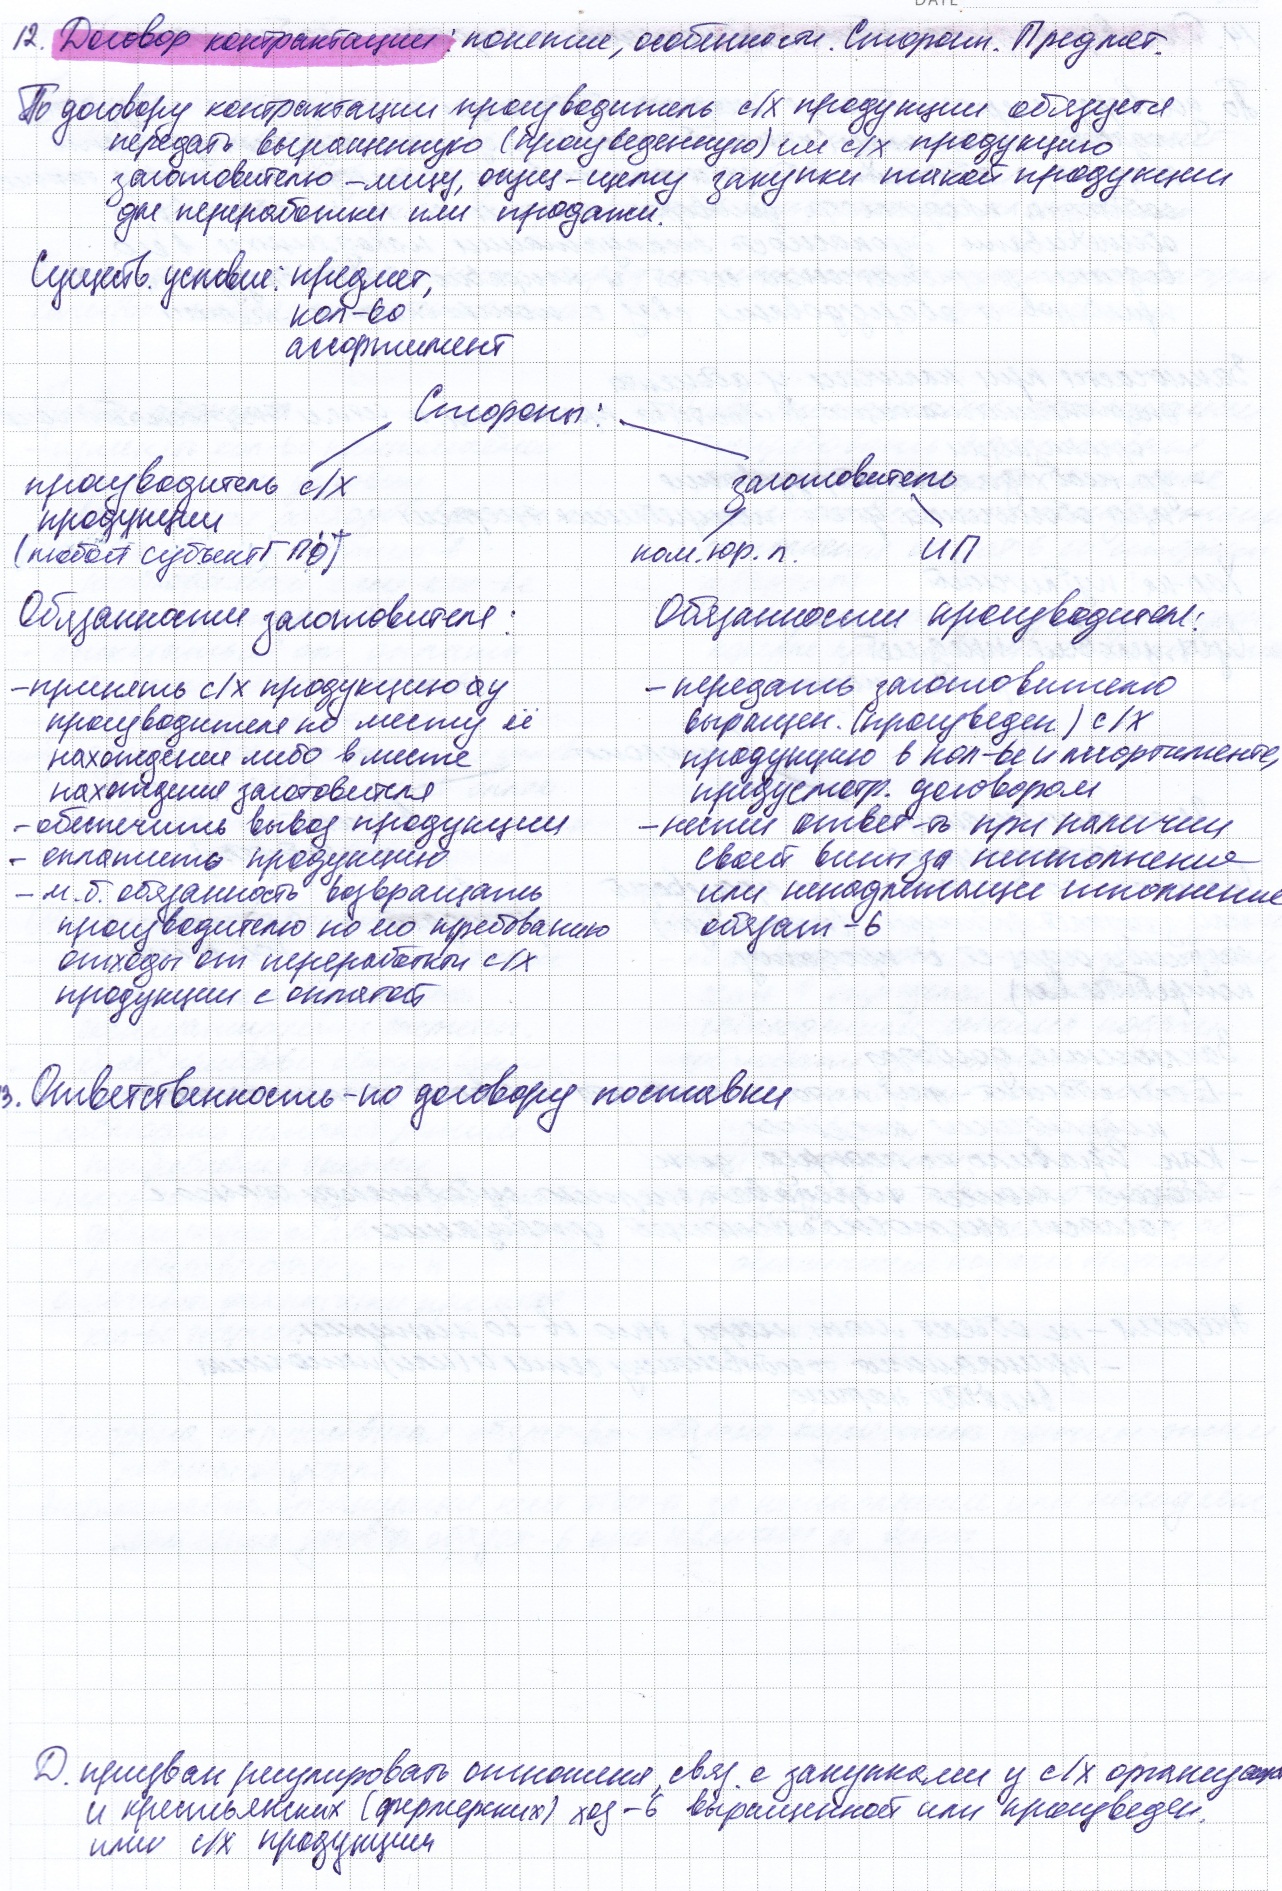 DATE
12. Договор контрактации: понятие, особенности. Сторон. Предмет.
По договору контрактации производитель с/х продукции обязуется
передать выращенную (произведенную) им с/х продукцию
заготовителю – лицу, осущ-щему закупки такой продукции
для переработки или продажи.
Существ. условие: предмет,
кол-во
ассортимент
Стороны:
производитель с/х
продукции
(любой субъект ГПО)
заготовитель
ком. юр. л.
ИП
Обязанности заготовителя:
- принять с/х продукцию у
производителя по месту её
нахождения либо в месте
нахождения заготовителя
- обеспечить вывоз продукции
- оплатить продукцию
- м.б. обязанность возвращать
производителю по его требованию
отходы от переработки с/х
продукции с оплатой
Обязанности производителя:
- передать заготовителю
выращен. (произведен.) с/х
продукцию в кол-ве и ассортименте,
предусмотр. договором
- нести ответ-ть при наличии
своей вины за неисполнение
или ненадлежащее исполнение
обязат-в
3. Ответственность – по договору поставки
Д. призван регулировать отношения, связ. с закупками у с/х организаций
и крестьянских (фермерских) хоз-в выращенной или произведен.
ими с/х продукции